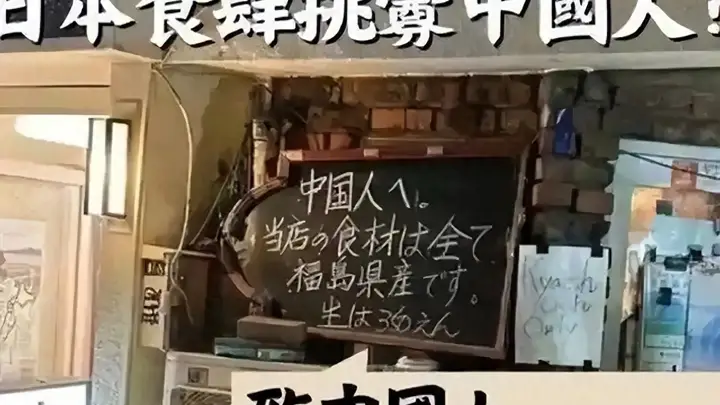 日本食肆挑釁中國人
中国人へ。
当店の食材は全て
福島県産です。
生は360えん
Only